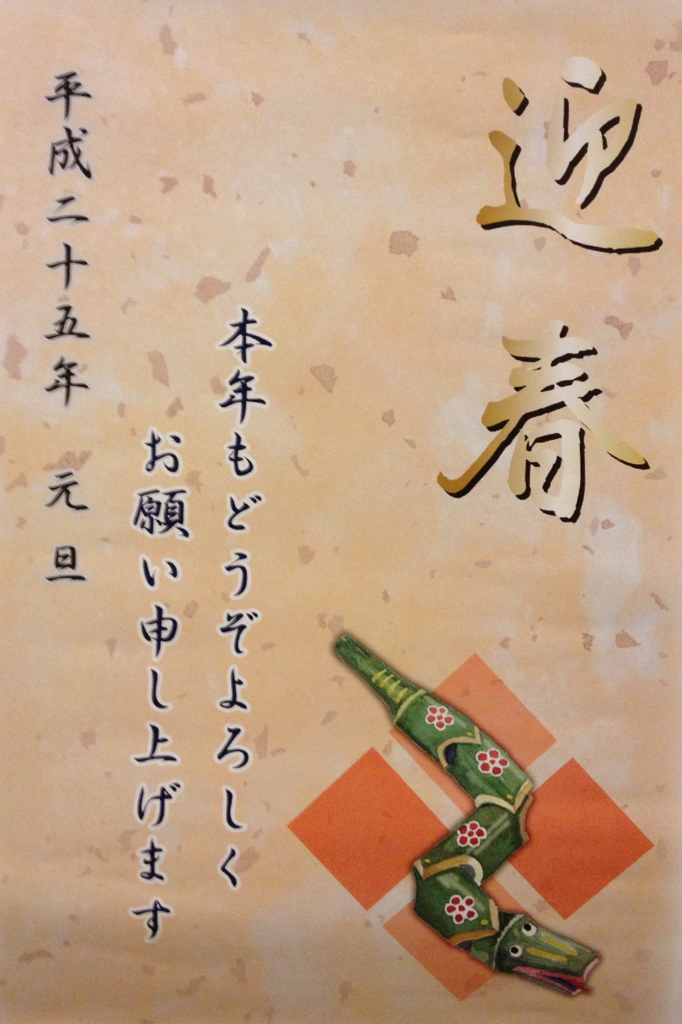 迎春
本年もどうぞよろしく
お願い申し上げます
平成二十五年 元旦